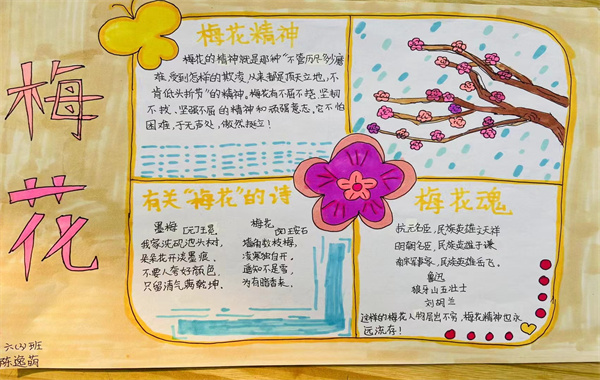 梅花
梅花精神
梅花的精神就是那种"不管历尽多少磨
难,受到怎样的欺凌,从来都是顶天立地,不
肯低头折节"的精神。梅花有不屈不挠,坚韧
不拔、坚强不屈的精神和顽强意志,它不怕
困难,于无声处,傲然挺立!
有关"梅花"的诗
墨梅 [元]王冕
我家洗砚池头树,
朵朵花开淡墨痕。
不要人夸好颜色,
只留清气满乾坤。
梅花
[宋]王安石
墙角数枝梅,
凌寒独自开。
遥知不是雪,
为有暗香来。
梅花魂
抗元名臣,民族英雄文天祥
明朝名臣,民族英雄于谦
南宋军事家,民族英雄岳飞。
鲁迅
狼牙山五壮士
刘胡兰
这样的梅花人物层出不穷,梅花精神也永
远流存!
六(4)班
陈逸萌